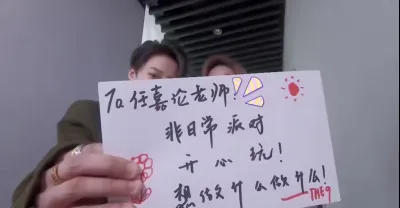 To 任嘉伦老师!
非日常派对
开心玩!
想做什么做什么!
THE9